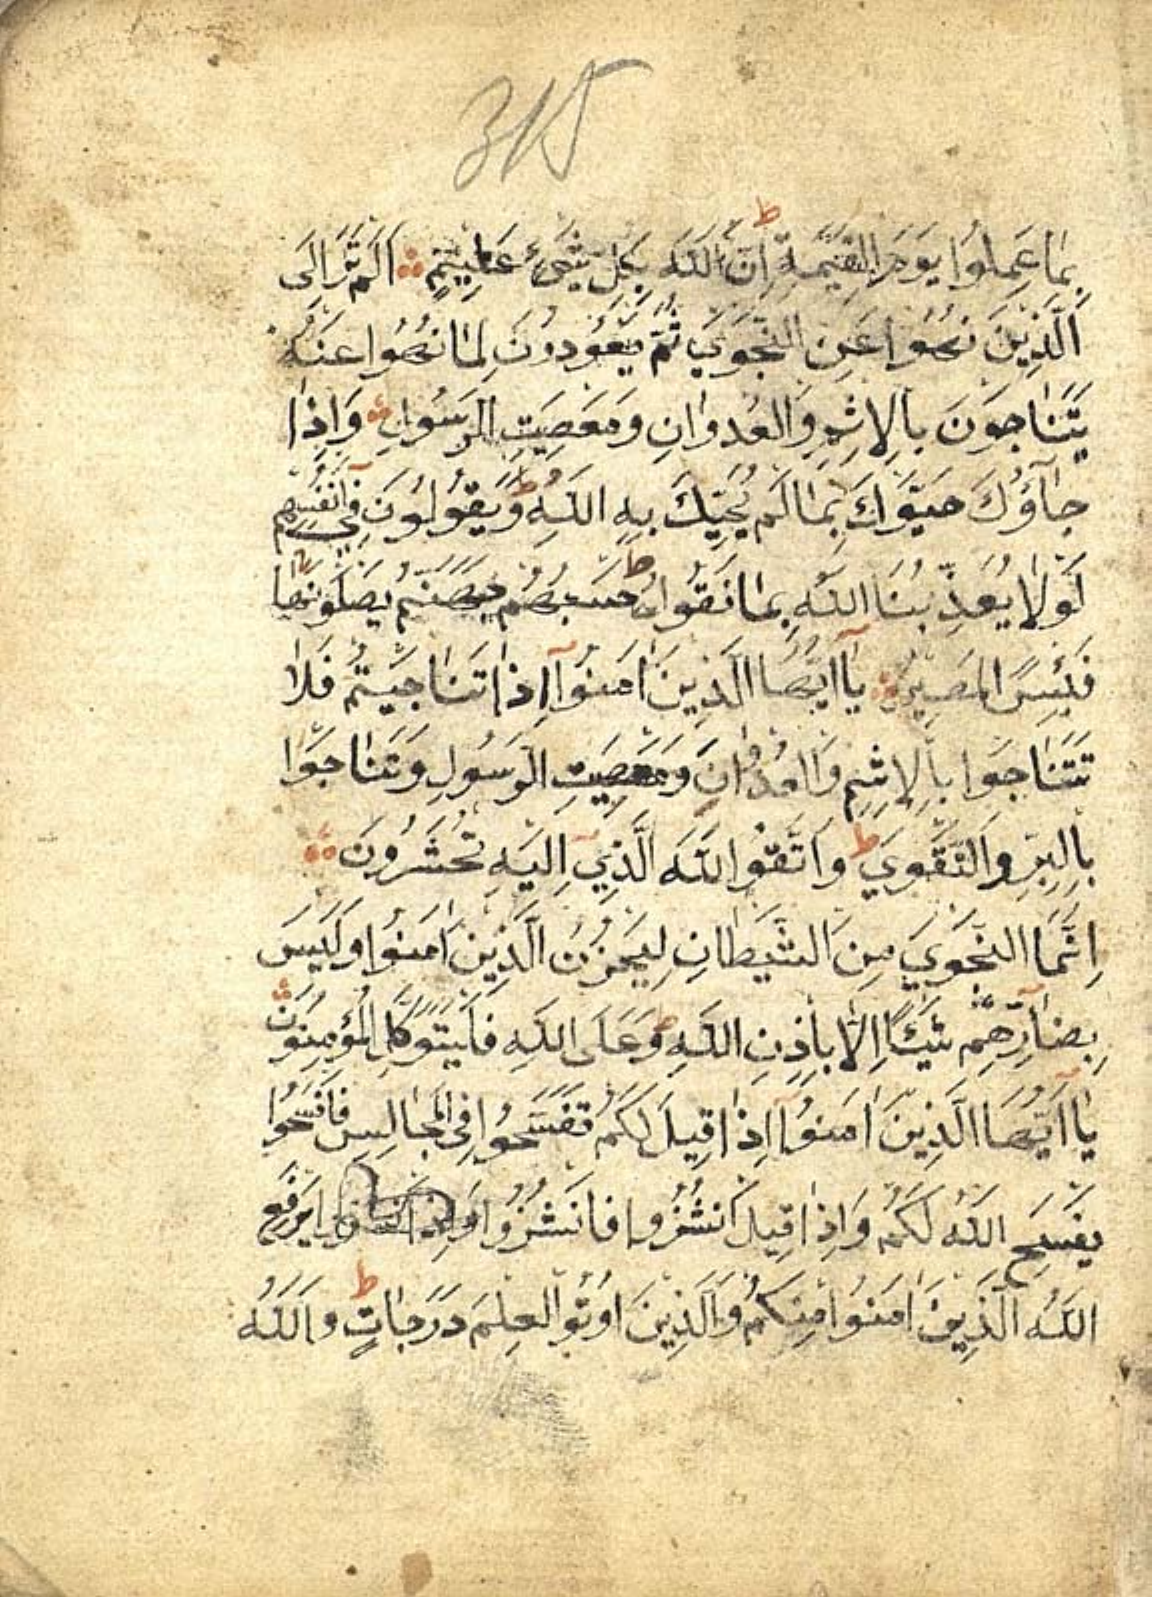 315
بِمَا عَمِلُوا يَوْمَ الْقِيٰمَةِ ط اِنَّ اللّٰهَ بِكُلِّ شَيْءٍ عَلِيمٌ اَلَمْ تَرَ اِلَى
الَّذِينَ نُهُوا عَنِ النَّجْوَي ثُمَّ يَعُودُونَ لِمَا نُهُوا عَنْهُ
يَتَنَاجَوْنَ بِالْاِثْمِ وَالْعُدْوَانِ وَمَعْصِيَتِ الرَّسُولِ وَاِذَا
جَآؤُكَ حَيَّوْكَ بِمَا لَمْ يُحَيِّكَ بِهِ اللّٰهُ ط وَيَقُولُونَ فِي اَنْفُسِهِمْ
لَوْلَا يُعَذِّبُنَا اللّٰهُ بِمَا نَقُولُ ط حَسْبُهُمْ جَهَنَّمُ يَصْلَوْنَهَا
فَبِئْسَ الْمَصِيرُ يَآ اَيُّهَا الَّذِينَ اٰمَنُوآ اِذَا تَنَاجَيْتُمْ فَلَا
تَتَنَاجَوْا بِالْاِثْمِ وَالْعُدْوَانِ وَمَعْصِيَتِ الرَّسُولِ وَتَنَاجَوْا
بِالْبِرِّ وَالتَّقْوَي ط وَاتَّقُوا اللّٰهَ الَّذِي اِلَيْهِ تُحْشَرُونَ
اِنَّمَا النَّجْوَي مِنَ الشَّيْطَانِ لِيَحْزُنَ الَّذِينَ اٰمَنُوا وَلَيْسَ
بِضَآرِّهِمْ شَيْئًا اِلَّا بِاِذْنِ اللّٰهِ ط وَعَلَى اللّٰهِ فَلْيَتَوَكَّلِ الْمُؤْمِنُونَ
يَآ اَيُّهَا الَّذِينَ اٰمَنُوآ اِذَا قِيلَ لَكُمْ تَفَسَّحُوا فِي الْمَجَالِسِ فَافْسَحُوا
يَفْسَحِ اللّٰهُ لَكُمْ وَاِذَا قِيلَ انْشُزُوا فَانْشُزُوا يَرْفَعِ
اللّٰهُ الَّذِينَ اٰمَنُوا مِنْكُمْ وَالَّذِينَ اُوتُوا الْعِلْمَ دَرَجَاتٍ ط وَاللّٰهُ